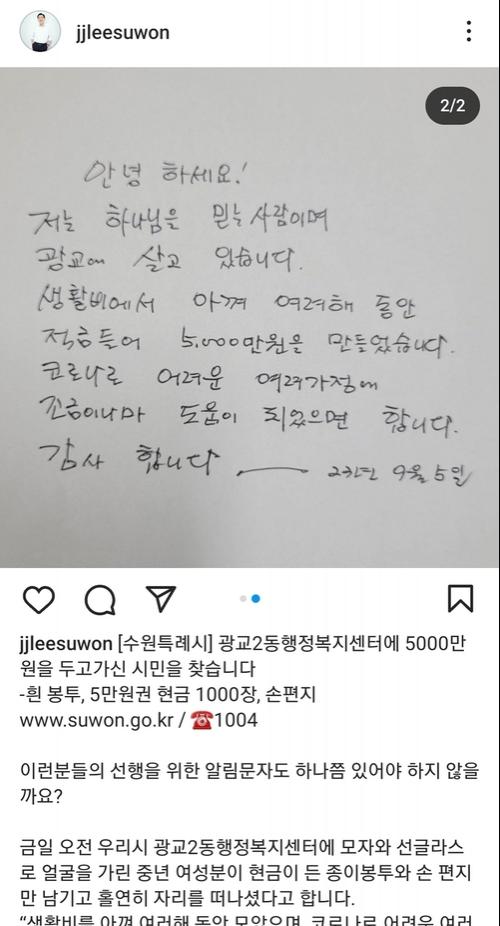 jjleesuwon
2/2
안녕 하세요!
저는 하나님을 믿는 사람이며
광교에 살고 있습니다.
생활비에서 아껴 여려해 동안
적금들어 5,000만원을 만들었습니다.
코로나로 어려운 여려가정에
조금이나마 도움이 되었으면 합니다.
감사 합니다 23년 9월 5일
jjleesuwon [수원특례시] 광교2동행정복지센터에 5000만
원을 두고가신 시민을 찾습니다
-흰 봉투, 5만원권 현금 1000장, 손편지
www.suwon.go.kr / ☎️1004
이런분들의 선행을 위한 알림문자도 하나쯤 있어야 하지 않을
까요?
금일 오전 우리시 광교2동행정복지센터에 모자와 선글라스
로 얼굴을 가린 중년 여성분이 현금이 든 종이봉투와 손 편지
만 남기고 홀연히 자리를 떠나셨다고 합니다.
“생활비를 아껴 여러해 동안 모았으며, 코로나로 어려운 여러